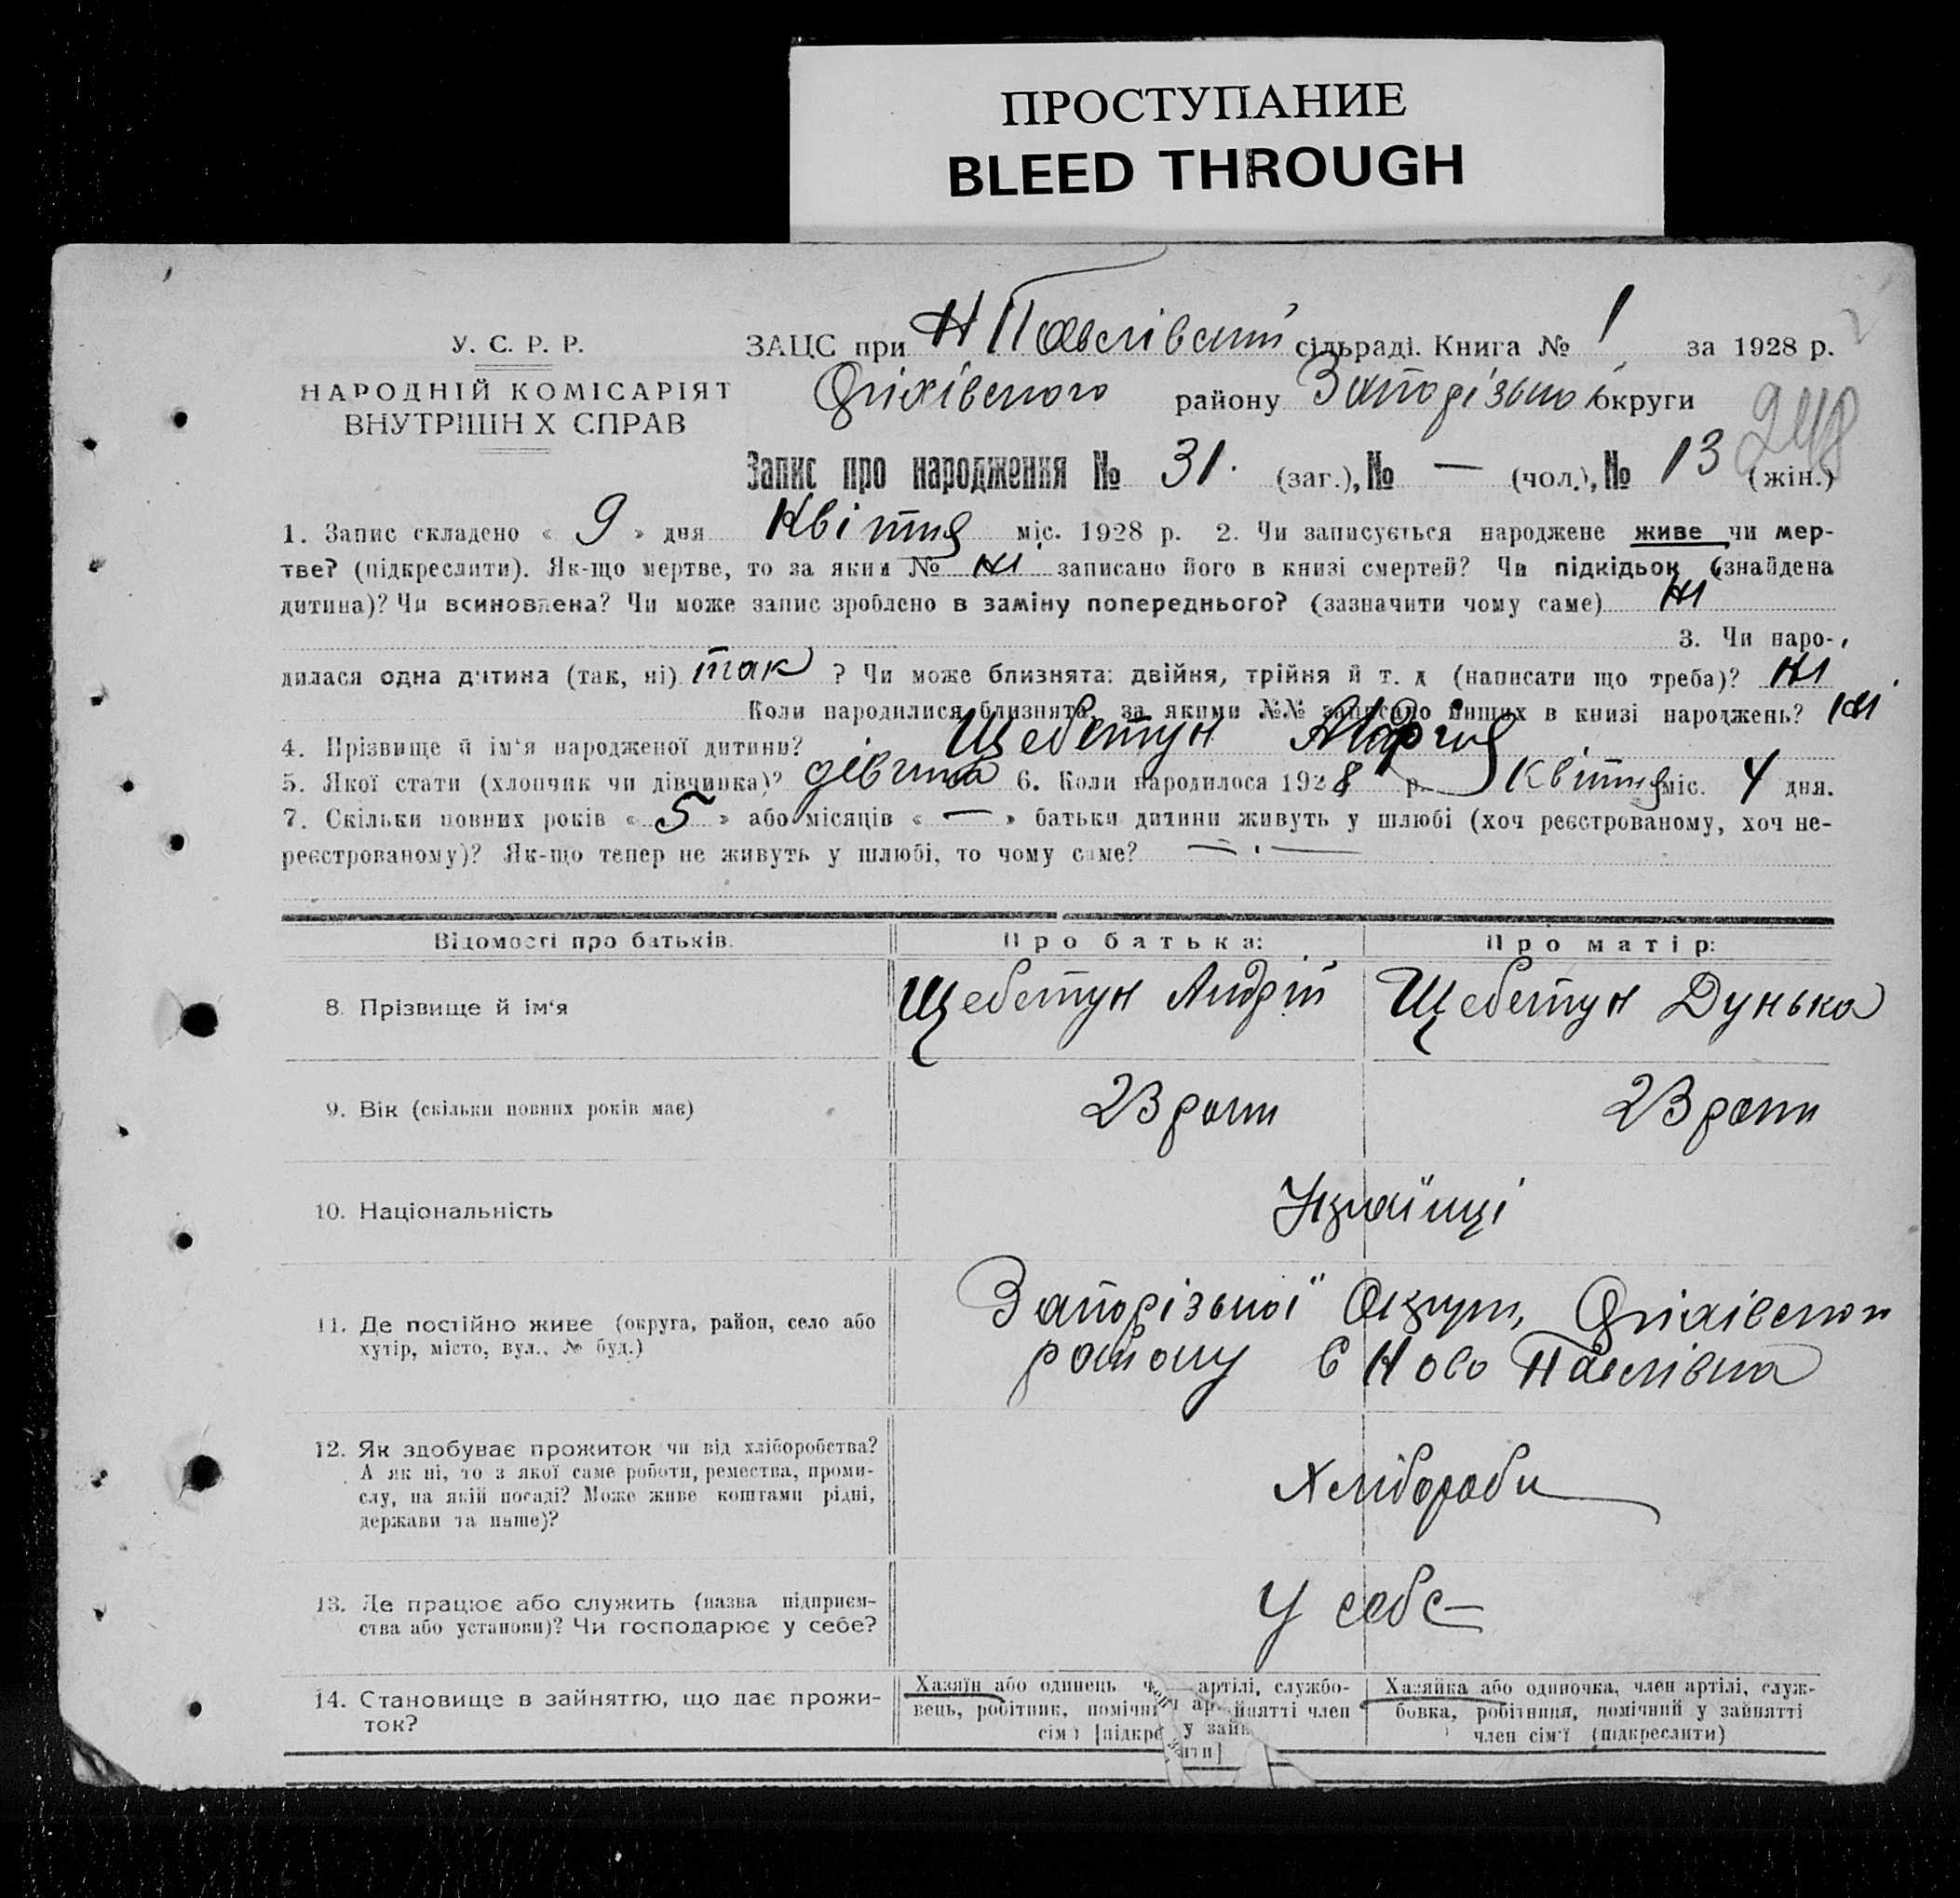 ПРОСТУПАНИЕ
BLEED THROUGH
У. С. Р. Р.
НАРОДНІЙ КОМІСАРІЯТ
ВНУТРІШН Х СПРАВ
ЗАЦС при Н Павлівській сільраді. Книга № 1 за 1928 р.
Оріхівського району Запорізької округи
248
Запис про народження № 31. (заг.), № — (чол.), № 13 (жін.)
1. Запис складено « 9 » дня Квітня міс. 1928 р. 2. Чи записується народжене живе чи мер-
тве? (підкреслити). Як-що мертве, то за яким № Ні записано його в книзі смертей? Чи підкідьок (знайдена
дитина)? Чи всиновлена? Чи може запис зроблено в заміну попереднього? (зазначити чому саме) Ні
3. Чи наро-
дилася одна дитина (так, ні) так ? Чи може близнята: двійня, трійня й т. д (написати що треба)? Ні
Коли народилися близнята, за якими №№ записано инших в книзі народжень? Ні
4. Прізвище й ім'я народженої дитини? Щебетун Марія
5. Якої стати (хлопчик чи дівчинка)? дівчина 6. Коли народилося 1928 р. Квітня міс. 4 дня.
7. Скільки повних років « 5 » або місяців « — » батьки дитини живуть у шлюбі (хоч реєстрованому, хоч не-
реєстрованому)? Як-що тепер не живуть у шлюбі, то чому саме? — · —
Відомості про батьків.
Про батька:
Про матір:
8. Прізвище й ім'я
Щебетун Андрій
Щебетун Дунька
9. Вік (скільки повних років має)
23 роки
23 роки
10. Національність
Українці
11. Де постійно живе (округа, район, село або
хутір, місто, вул., № буд.)
Запорізької Округи, Оріхівського
району с Ново Павлівка
12. Як здобуває прожиток чи від хліборобства?
А як ні, то з якої саме роботи, ремества, проми-
слу, на якій посаді? Може живе коштами рідні,
держави та инше)?
Хлібороби
13. Де працює або служить (назва підприєм-
ства або установи)? Чи господарює у себе?
У себе
14. Становище в зайняттю, що дає прожи-
ток?
Хазяїн або одинець ч артілі, службо-
вець, робітник, помічні йнятті член
сім ї [підкре
Хазяйка або одиночка, член артілі, служ-
бовка, робітниця, помічний у зайнятті
член сім'ї (підкреслити)